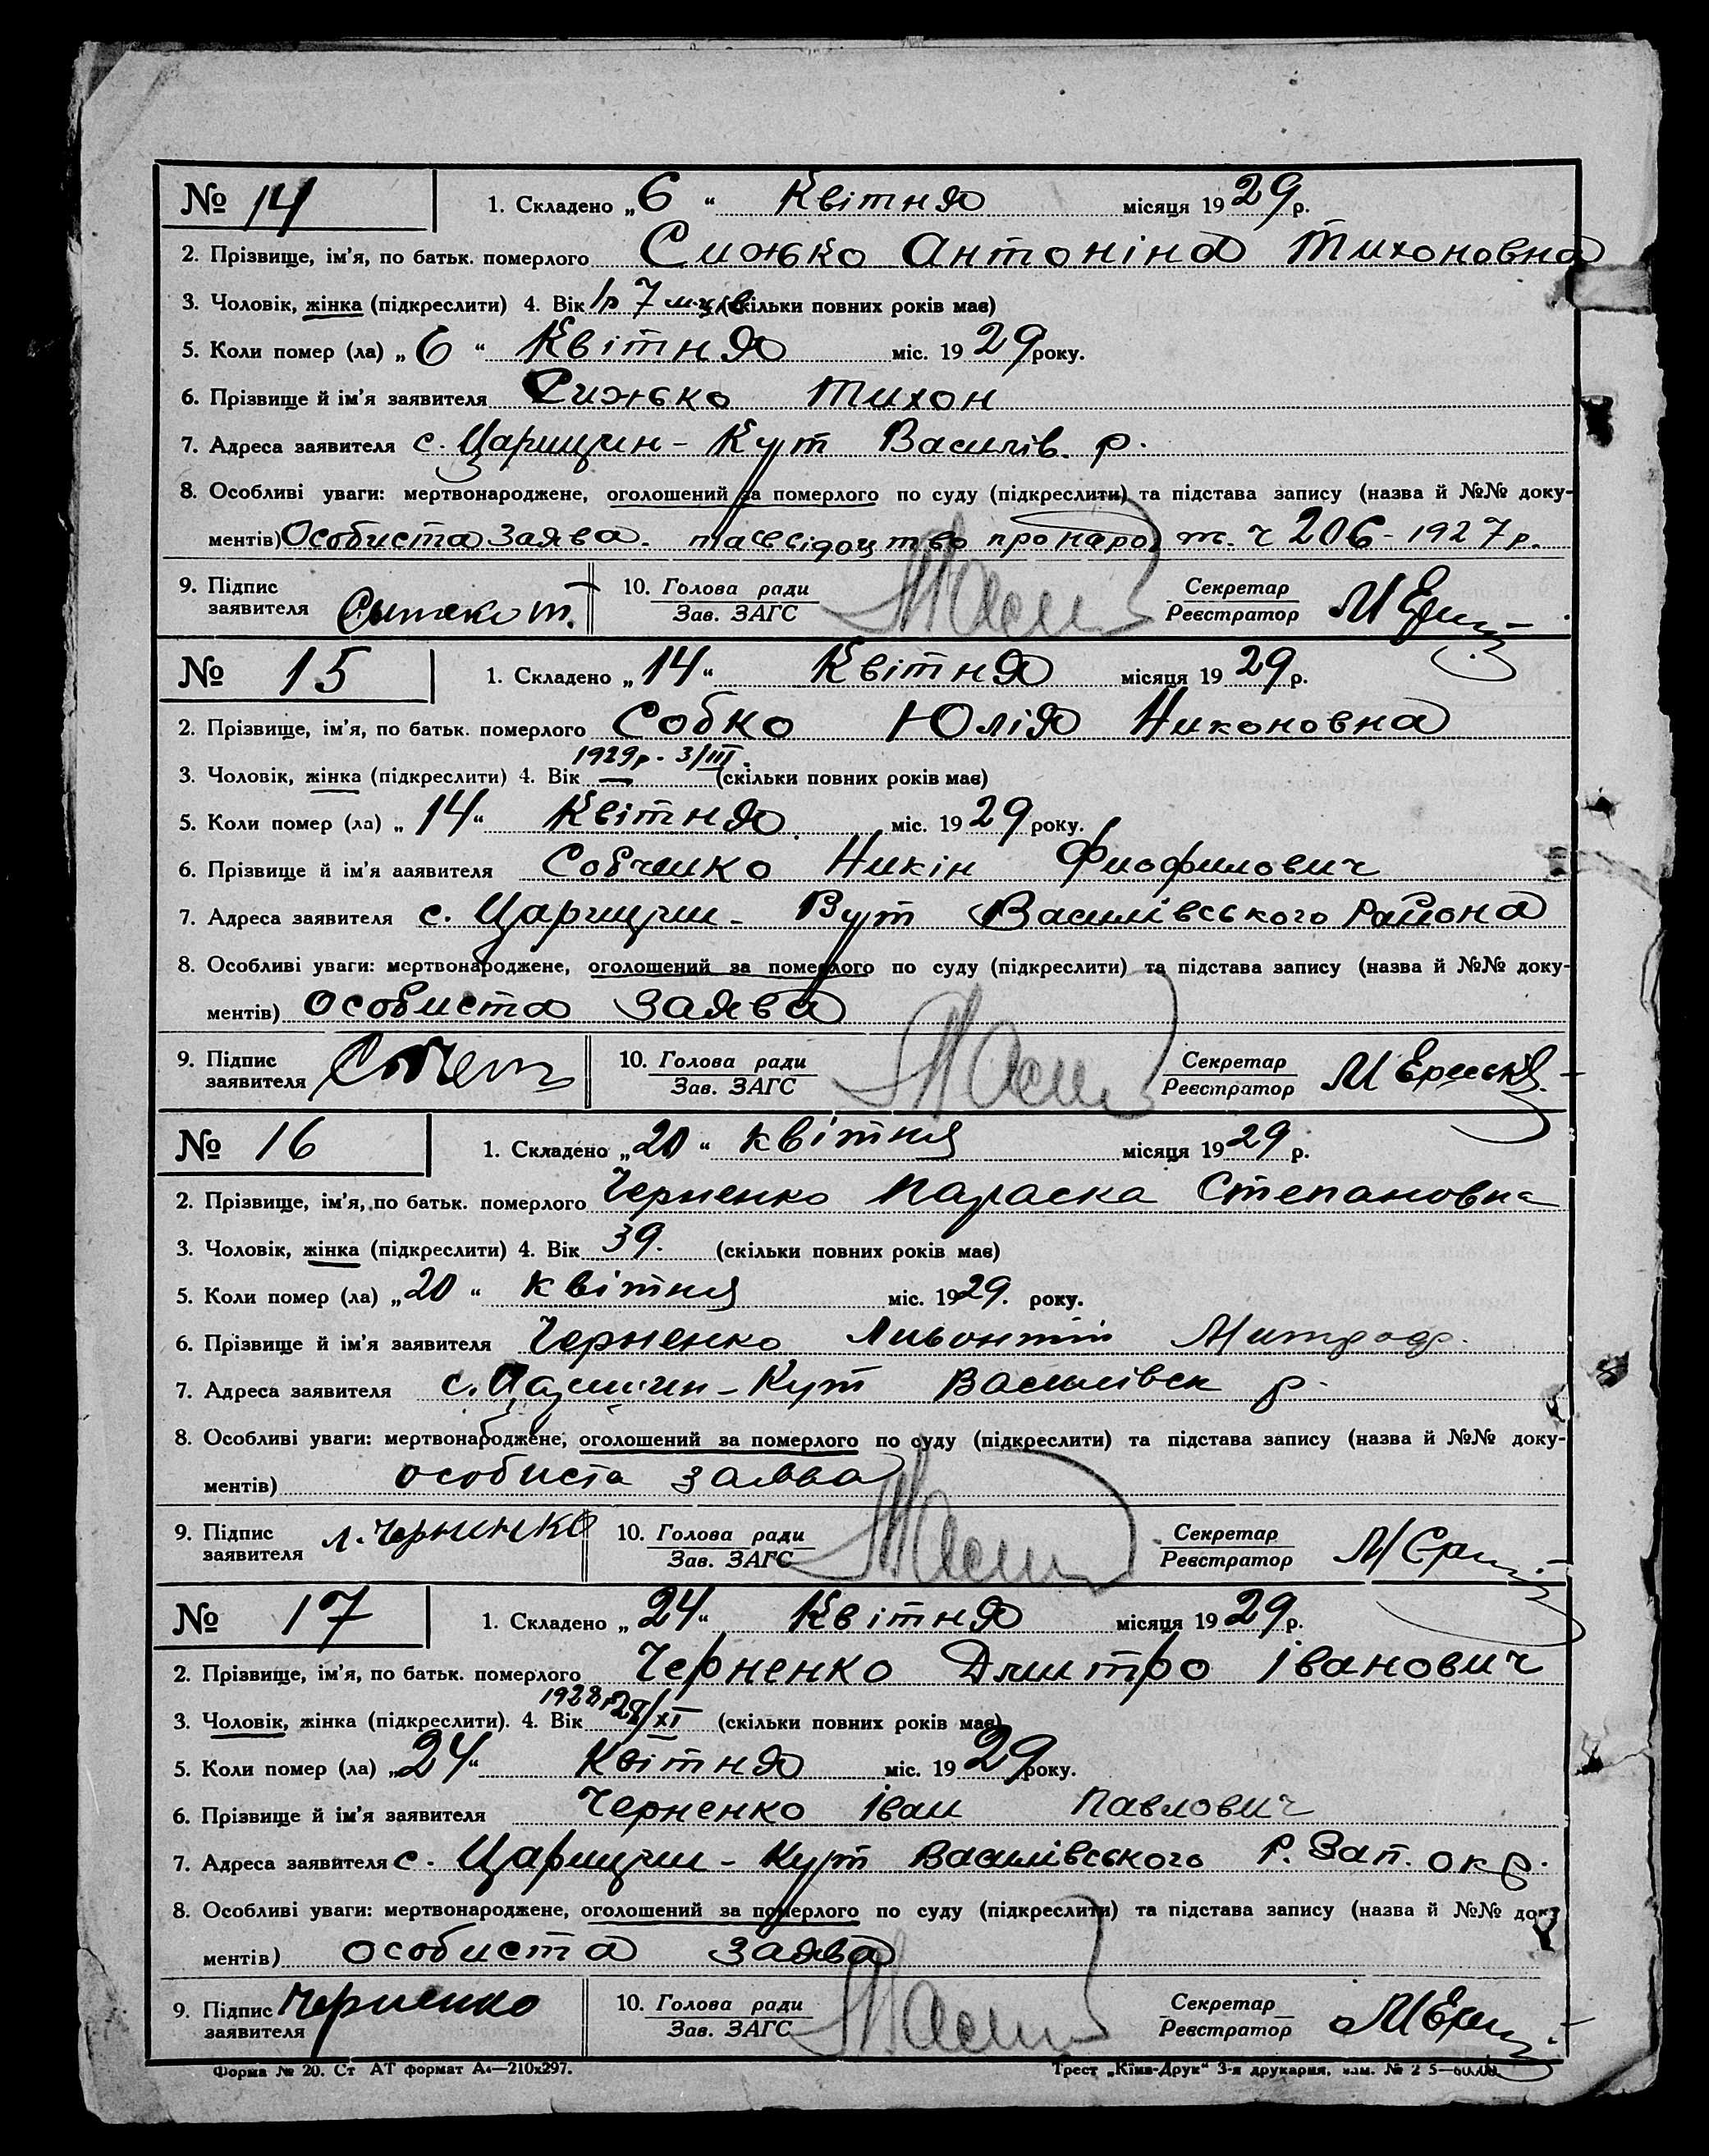 № 14 1. Складено „6“ Квітня місяця 1929р.
2. Прізвище, ім'я, по батьк. померлого Сижько Антоніна Тихоновна
3. Чоловік, жінка (підкреслити) 4. Вік 1р 7 (скільки повних років має)
5. Коли помер (ла) „6“ Квітня міс. 1929 року.
6. Прізвище й ім'я заявителя Сижько Тихон
7. Адреса заявителя с. Царицин-Кут Василів. р.
8. Особливі уваги: мертвонароджене, оголошений за померлого по суду (підкреслити) та підстава запису (назва й №№ доку-
ментів) Особиста Заява. про народ ж. ч 206 - 1927р.
9. Підпис 10. Голова ради Секретар
заявителя Зав. ЗАГС Реєстратор
№ 15 1. Складено „14“ Квітня місяця 1929р.
2. Прізвище, ім'я, по батьк. померлого Собко Юлія Никоновна
1929р. 3/III.
3. Чоловік, жінка (підкреслити) 4. Вік — (скільки повних років має)
5. Коли помер (ла) „14“ Квітня міс. 1929 року.
6. Прізвище й ім'я заявителя Никін Фиофилович
7. Адреса заявителя с. Царицин- Кут Василівського Района
8. Особливі уваги: мертвонароджене, оголошений за померлого по суду (підкреслити) та підстава запису (назва й №№ доку-
ментів) Особиста Заява
9. Підпис 10. Голова ради Секретар
заявителя Зав. ЗАГС Реєстратор
№ 16 1. Складено „20“ квітня місяця 1929 р.
2. Прізвище, ім'я, по батьк. померлого Черненко Параска Степановна
3. Чоловік, жінка (підкреслити) 4. Вік 39. (скільки повних років має)
5. Коли помер (ла) „20“ квітня міс. 1929. року.
6. Прізвище й ім'я заявителя Черненко Ливонтій Митроф.
7. Адреса заявителя с. Царицин-Кут Василівск р.
8. Особливі уваги: мертвонароджене, оголошений за померлого по суду (підкреслити) та підстава запису (назва й №№ доку-
ментів) особиста заява
9. Підпис л. Чернинко 10. Голова ради Секретар
заявителя Зав. ЗАГС Реєстратор
№ 17 1. Складено „24“ Квітня місяця 1929р.
2. Прізвище, ім'я, по батьк. померлого Черненко Дмитро Іванович
1928р
3. Чоловік, жінка (підкреслити). 4. Вік 28/XI (скільки повних років має)
5. Коли помер (ла) „24“ Квітня міс. 1929 року.
6. Прізвище й ім'я заявителя Черненко Іван Павлович
7. Адреса заявителя с. Царицин- Кут Василівського Р. Зап. окр.
8. Особливі уваги: мертвонароджене, оголошений за померлого по суду (підкреслити) та підстава запису (назва й №№ доку-
ментів) особиста заява
9. Підпис Черненко 10. Голова ради Секретар
заявителя Зав. ЗАГС Реєстратор
Форма № 20. Ст АТ формат А4—210x297. Трест „Київ-Друк“ 3-я друкарня, зам. №